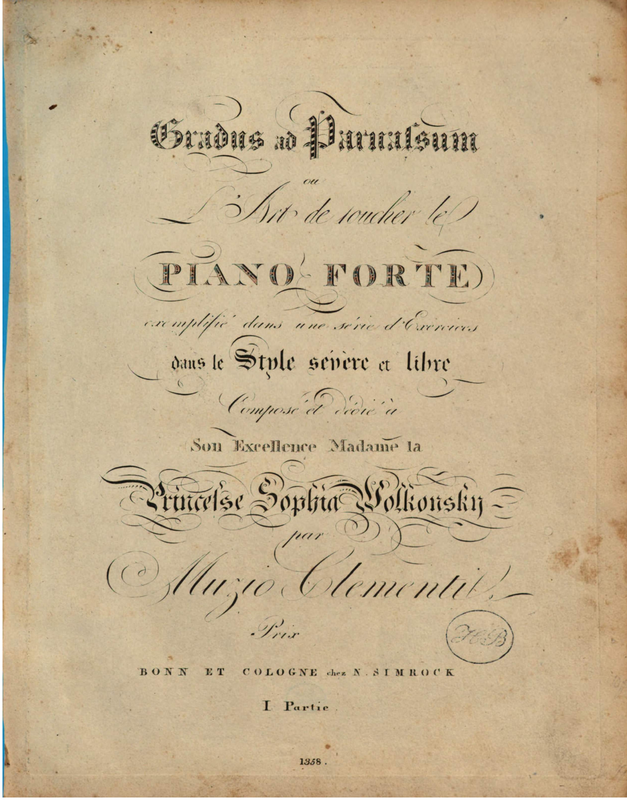 Gradus ad Parnaſsum
ou
L'Art de toucher le
PIANO FORTE
exemplifié dans une série d'Exercices
dans le Style sévère et libre
Composé et dédié à
Son Excellence Madame la
Princeſse Sophia Wolkonsky
par
Muzio Clementi
Prix
HB
BONN ET COLOGNE chez N. SIMROCK
I Partie.
1358.